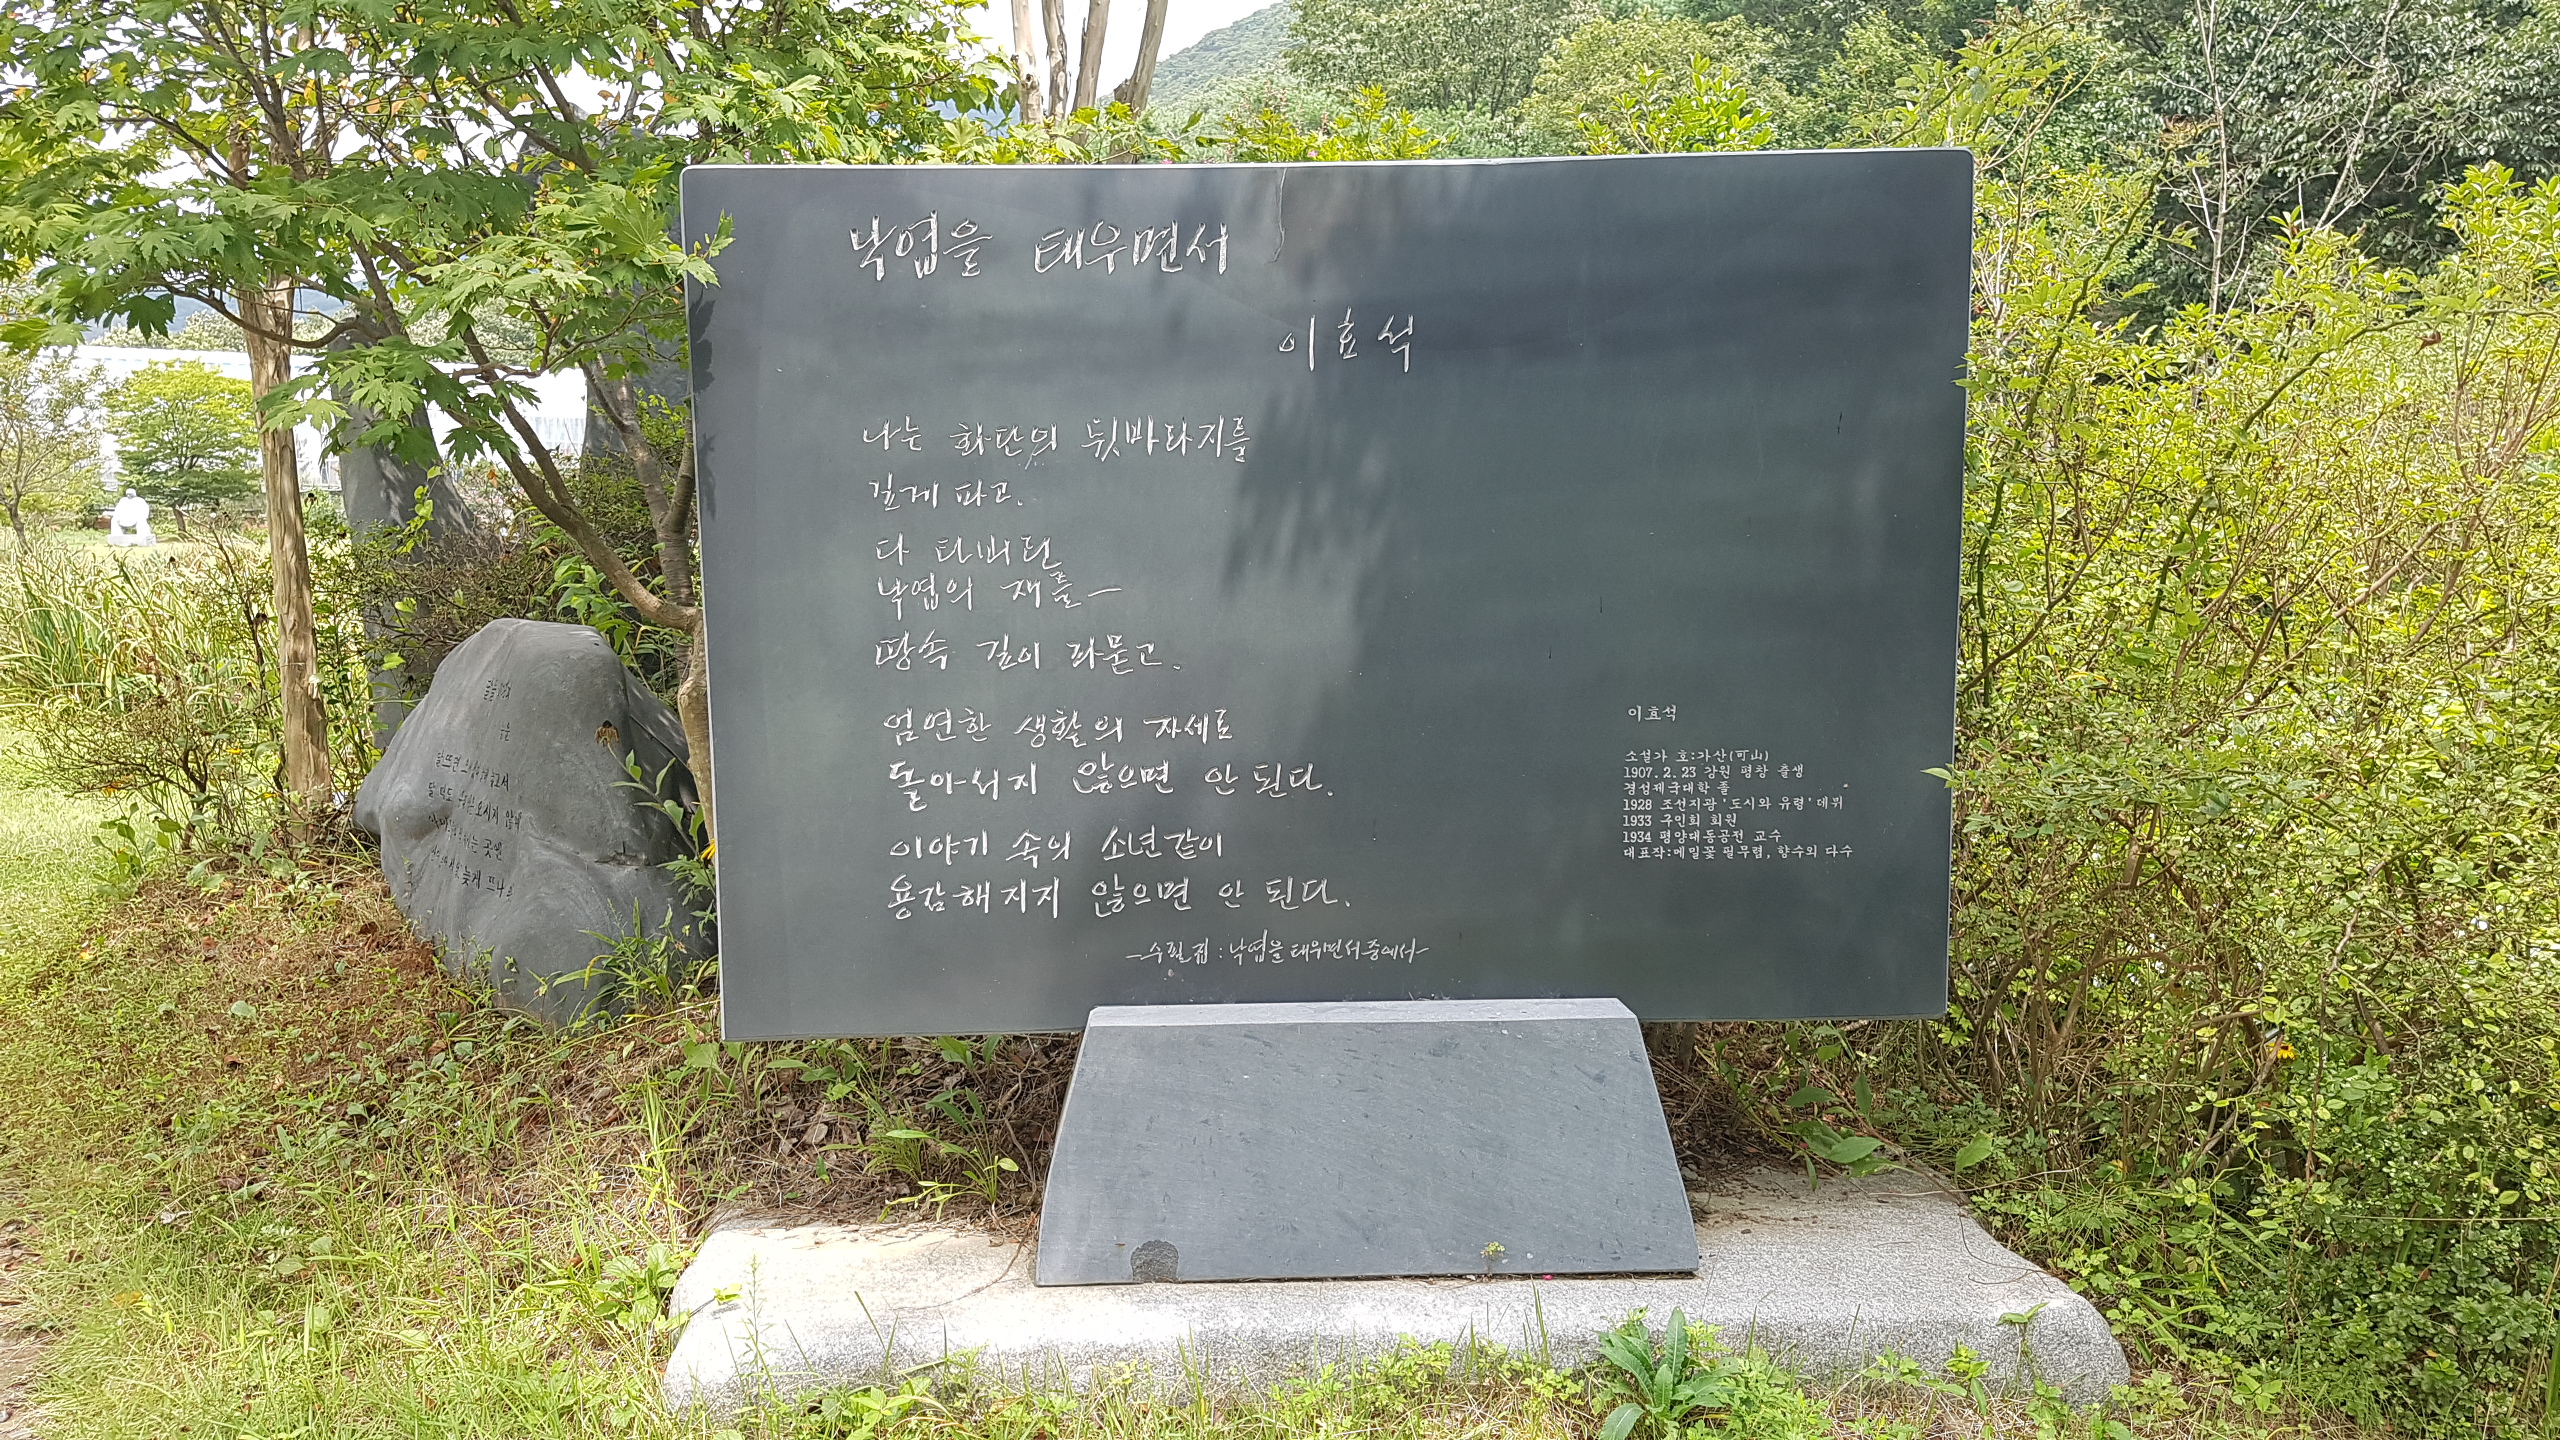 낙엽을 태우면서
이효석
나는 화단의 뒷바라지를
깊게 파고.
다 타버린
낙엽의 재를—
땅속 깊이 파묻고.
엄연한 생활의 자세로
돌아서지 않으면 안 된다.
이야기 속의 소년같이
용감해지지 않으면 안 된다.
-수필집:낙엽을 태우면서 중에서-
이효석
소설가 호:가산(可山)
1907.2.23 강원 평창 출생
경성제국대학 졸
1928 조선지광 '도시와 유령' 데뷔
1933 구인회 회원
1934 평양대동공전 교수
대표작:메밀꽃 필무렵, 향수외 다수
달뜨면
달
곳엔
늦게 뜨나